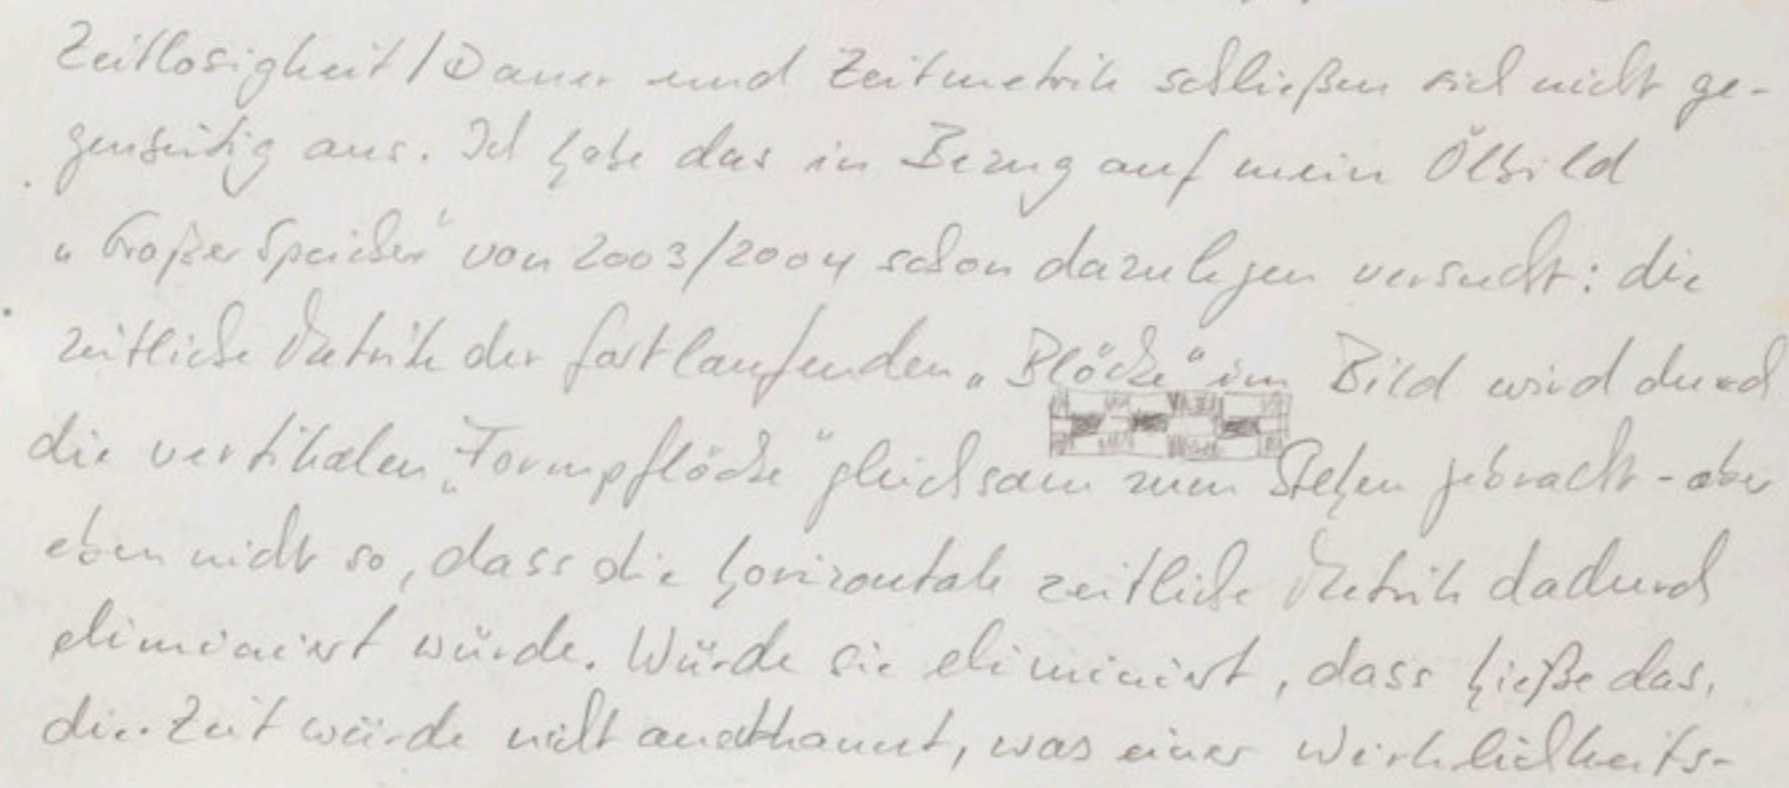 Zeitlosigkeit/Dauer und Zeitmetrik schließen sich nicht ge-
genseitig aus. Ich habe das in Bezug auf mein Ölbild
„Großer Speicher“ von 2003/2004 schon dazulegen versucht: die
zeitliche Metrik der fortlaufenden „Blöcke“ im Bild wird durch
die vertikalen „Formpflöcke“ gleichsam zum Stehen gebracht - aber
eben nicht so, dass die horizontale zeitliche Metrik dadurch
eliminiert würde. Würde sie eliminiert, dass hieße das,
die Zeit würde nicht anerkannt, was einer Wirklichkeits-